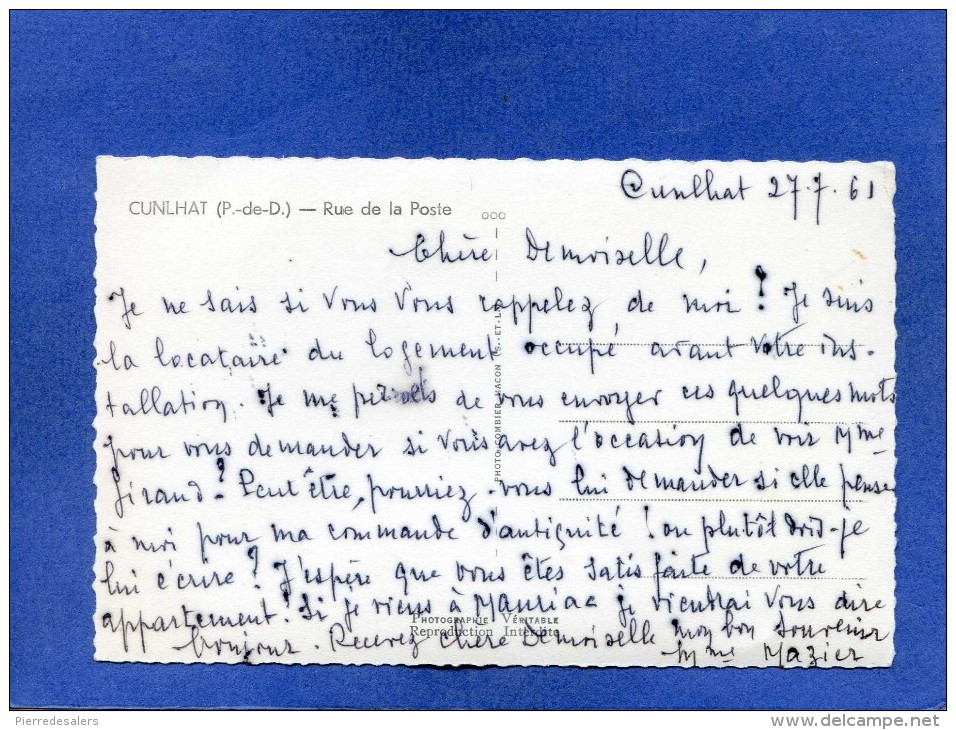 Cunlhat 27.7.61
CUNLHAT (P.-de-D.) — Rue de la Poste
Chère Demoiselle,
Je ne sais si vous vous rappelez de moi ! Je suis
la locataire du logement occupé avant votre ins-
tallation. Je me permets de vous envoyer ces quelques mots
pour vous demander si vous avez l'occasion de voir Mme
Girand ? Peut être, pourriez-vous lui demander si elle pense
à moi pour ma commande d'antiquité ! ou plutôt dois-je
lui écrire ? J'espère que vous êtes satisfaite de votre
appartement ! Si je viens à Mauriac je viendrai vous dire
bonjour. Recevez chère Demoiselle mon bon souvenir
Mme Mazier
PHOTO COMBIER MACON (S.-ET-L.)
PHOTOGRAPHIE VÉRITABLE
Reproduction Interdite
Pierredesalers
www.delcampe.net